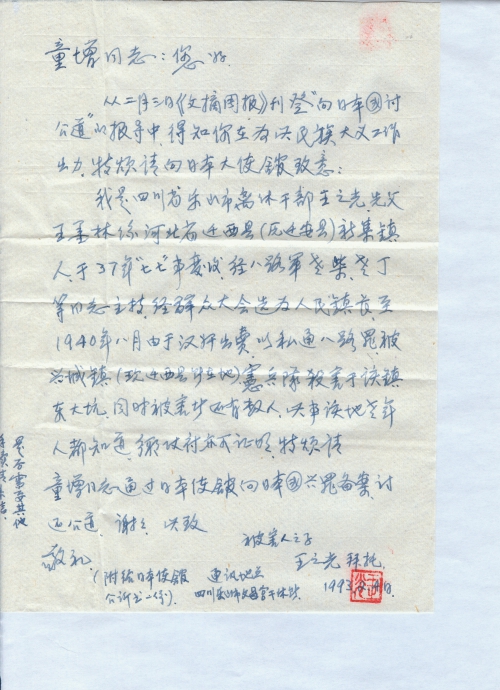 童增同志：您好
从二月三日《文摘周报》刊登“向日本国讨
公道”的报导中，得知你在为此民族大义工作
出力，特烦请向日本大使馆致意：
我是四川省乐山市离休干部王之光，先父
王 林系河北省迁西县（原迁安县）新集镇
人，于37年“七七”事变后，经八路军老柴、老丁
等同志主持，经群众大会选为人民镇长，至
1940年八月由于汉奸出卖，以私通八路罪被
兴城镇（现迁西县所在地）宪兵队杀害于该镇
东大坑，同时被害者还有数人，此事该地老年
人都知道，作证，特烦请
童增同志通过日本使馆向日本国兴罪备案，讨
还公道，谢谢，此致
敬礼
被害人之子
王之光 拜托
1993
（附给日本使馆
公诉书一份）
通讯地点
四川乐山市
是否需要其他
手续